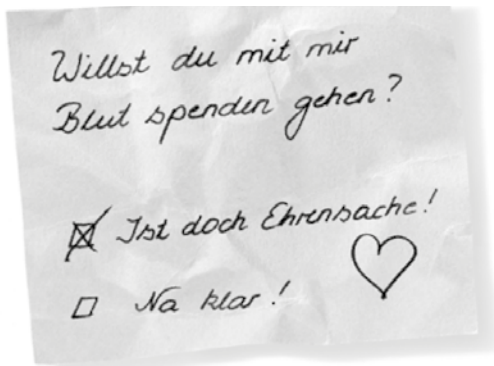 Willst du mit mir
Blut spenden gehen?
Ist doch Ehrensache!
Na klar!